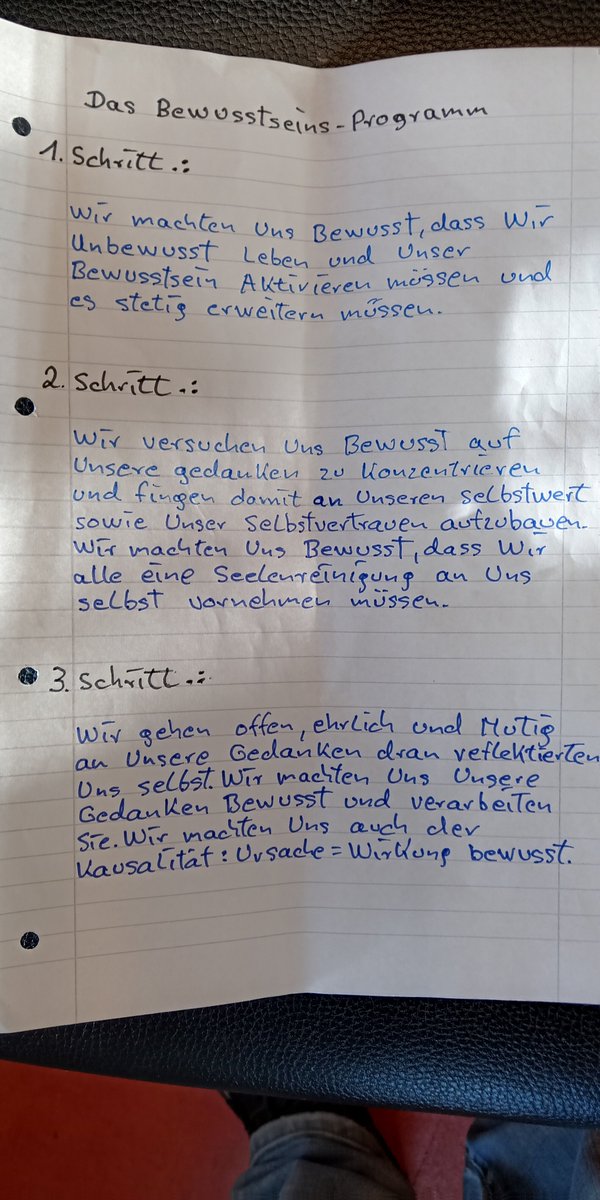 Das Bewusstseins-Programm
1. Schritt.:
Wir machten Uns Bewusst, dass Wir
Unbewusst Leben und Unser
Bewusstsein Aktivieren müssen und
es stetig erweitern müssen.
2. Schritt.:
Wir versuchen Uns Bewusst auf
Unsere gedanken zu Konzentrieren
und fingen damit an Unseren selbstwert
sowie Unser Selbstvertrauen aufzubauen.
Wir machten Uns Bewusst, dass Wir
alle eine Seelenreinigung an Uns
selbst vornehmen müssen.
3. Schritt.:
Wir gehen offen, ehrlich und Mutig
an Unsere Gedanken dran reflektierten
Uns selbst. Wir machten Uns Unsere
Gedanken Bewusst und verarbeiten
Sie. Wir machten Uns auch der
Kausalität: Ursache = Wirkung bewusst.